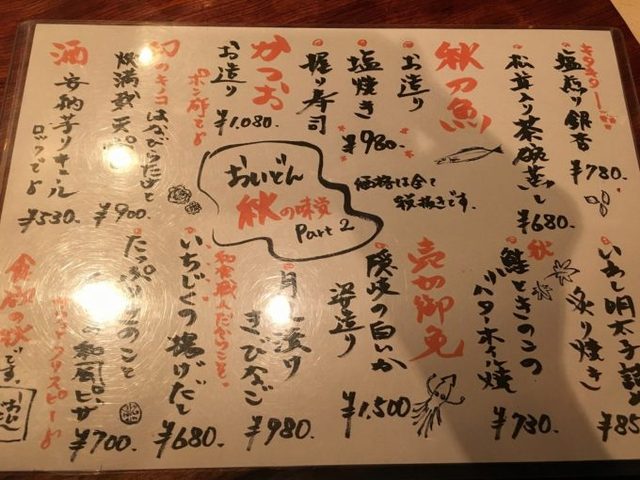 キタキター!!
塩煎り銀杏
¥780-
松茸入り茶碗蒸し
¥680-
秋刀魚
お造り
塩焼き
¥980-
握り寿司
かつお
お造り
¥1,080-
ポン酢でよ
幻のキノコ
はなびらたけと
天ぷら
¥900-
酒
安納芋リキュール
ロックでよ
¥530-
おいどん
秋の味覚
Part 2
価格は全て
税抜きです。
いわし明太子詰め
炙り焼き
¥85
秋
鮭ときのこの
バター木の葉焼
¥730-
売切御免
隠岐の白いか
姿造り
¥1,500
きびなご
¥980-
いちじくの揚げだし
¥680-
たっぷり
きのこと
和風ピザ
クリスピーよ
¥700-
食欲の秋
です。